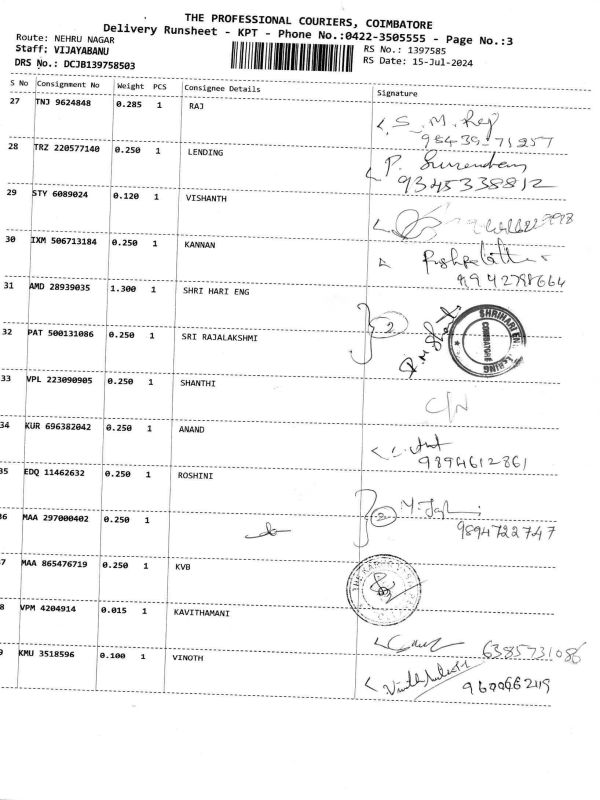 THE PROFESSIONAL COURIERS, COIMBATORE
Delivery Runsheet - KPT - Phone No.:0422-3505555 - Page No.:3
Route: NEHRU NAGAR
Staff: VIJAYABANU
DRS No.: DCJB139758503
RS No.: 1397585
RS Date: 15-Jul-2024
S No Consignment No Weight PCS Consignee Details Signature
27 TNJ 9624848 0.285 1 RAJ
S. M. Raj
98439-71257
28 TRZ 220577140 0.250 1 LENDING
P. Surendran
9345338812
29 STY 6089024 0.120 1 VISHANTH
30 IXM 506713184 0.250 1 KANNAN
9942798664
31 AMD 28939035 1.300 1 SHRI HARI ENG
2
SHRIHARI EN
COIMBATORE
32 PAT 500131086 0.250 1 SRI RAJALAKSHMI
33 VPL 223090905 0.250 1 SHANTHI
C/N
34 KUR 696382042 0.250 1 ANAND
9894612861
35 EDQ 11462632 0.250 1 ROSHINI
2
36 MAA 297000402 0.250 1
9894722747
37 MAA 865476719 0.250 1 KVB
38 VPM 4204914 0.015 1 KAVITHAMANI
6385731086
39 KMU 3518596 0.100 1 VINOTH
9600662119